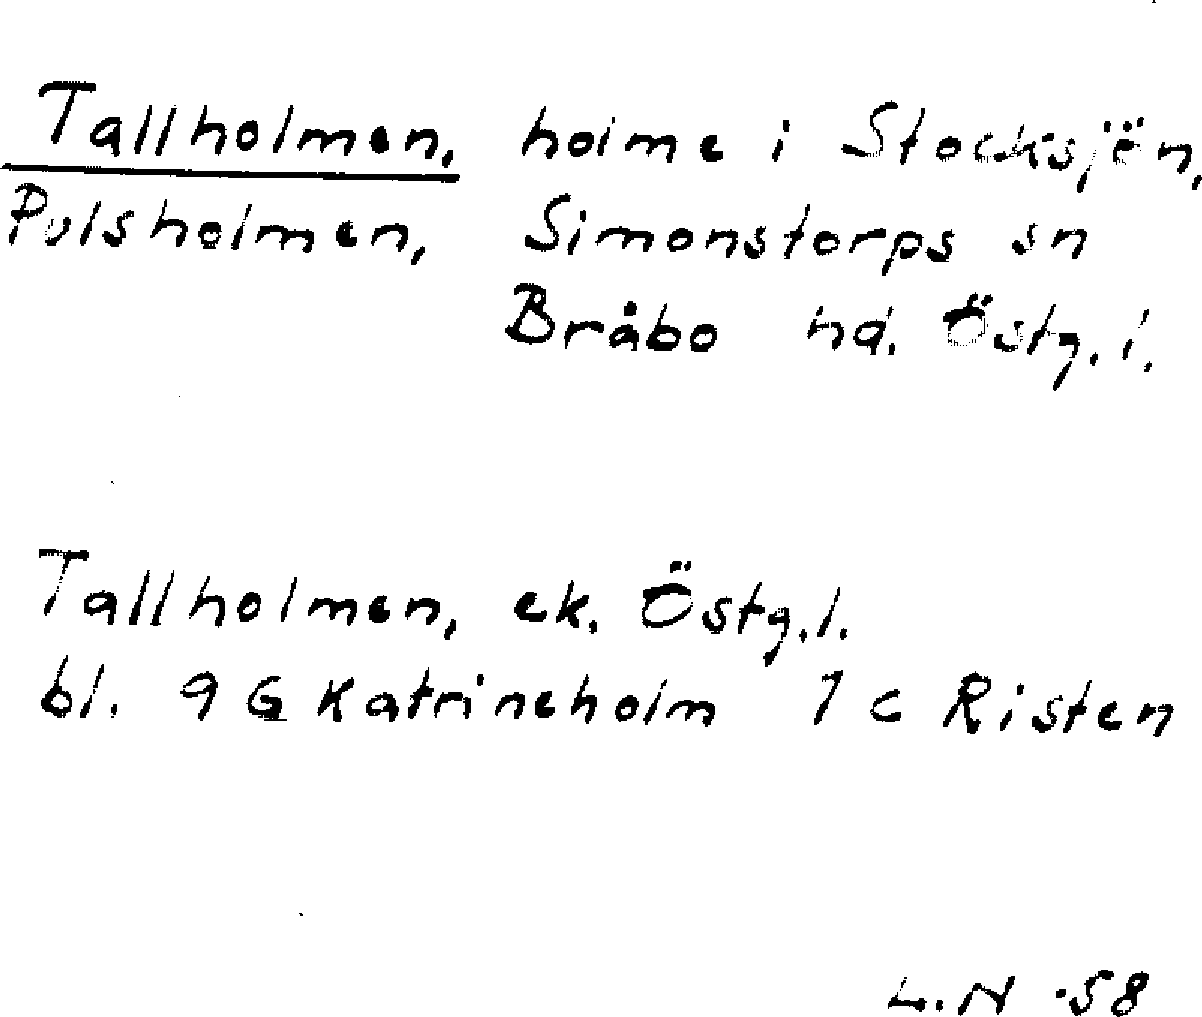 Tallholmen, holme i Stocksjön,
Pulsholmen, Simonstorps sn
Bråbo hd. Östg. l.
Tallholmen, ek. Östg.l.
bl. 9 G Katrineholm 1 c Risten
L.N -58